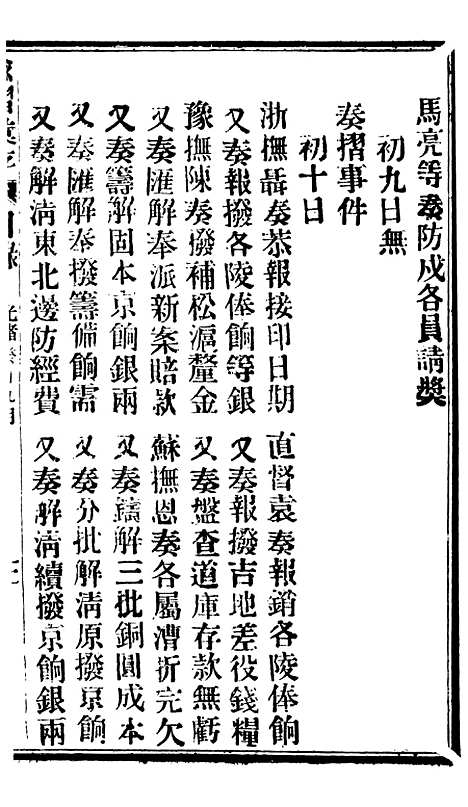 馬亮等奏防戍各員請獎
初九日無
奏摺事件
初十日
浙撫聶奏恭報接印日期
直督袁奏報銷各陵俸餉
又奏報撥各陵俸餉等銀
又奏報撥吉地差役錢糧
豫撫陳奏撥補松滬釐金
又奏盤查道庫存款無虧
又奏匯解奉派新案賠款
蘇撫恩奏各屬漕折完欠
又奏籌解固本京餉銀兩
又奏鑄解三批銅圓成本
又奏匯解奉撥籌備餉需
又奏分批解清原撥京餉
又奏解清東北邊防經費
又奏解清續撥京餉銀兩